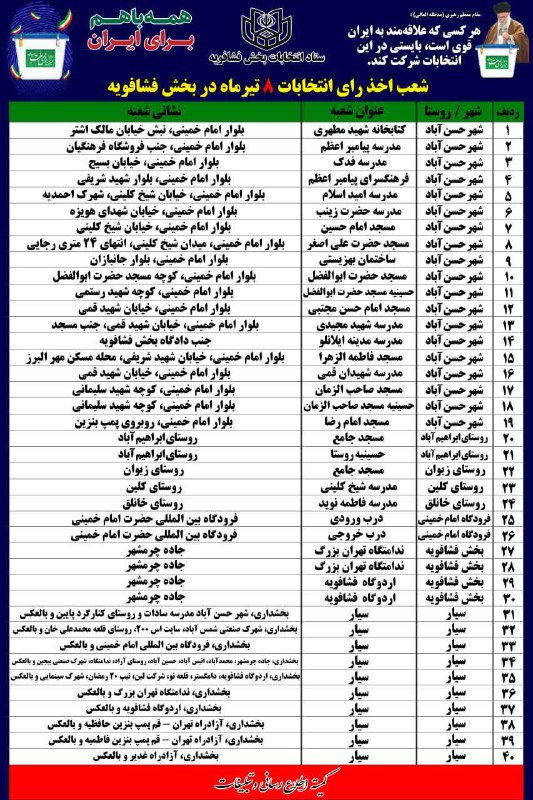 مقام معظم رهبری (مدظله العالی):
هر کسی که علاقه‌مند به ایران
قوی است، بایستی در این
انتخابات شرکت کند.
ستاد انتخابات بخش فشافویه
همه باهم
برای ایران
شعب اخذ رای انتخابات ۸ تیرماه در بخش فشافویه
ردیف شهر / روستا عنوان شعبه نشانی شعبه
۱ شهر حسن آباد کتابخانه شهید مطهری بلوار امام خمینی، نبش خیابان مالک اشتر
۲ شهر حسن آباد مدرسه پیامبر اعظم بلوار امام خمینی، جنب فروشگاه فرهنگیان
۳ شهر حسن آباد مدرسه فدک بلوار امام خمینی، خیابان بسیج
۴ شهر حسن آباد فرهنگسرای پیامبر اعظم بلوار امام خمینی، بلوار شهید شریفی
۵ شهر حسن آباد مدرسه امید اسلام بلوار امام خمینی، خیابان شیخ کلینی، شهرک احمدیه
۶ شهر حسن آباد مدرسه حضرت زینب بلوار امام خمینی، خیابان شهدای هویزه
۷ شهر حسن آباد مسجد امام حسین بلوار امام خمینی، خیابان شیخ کلینی
۸ شهر حسن آباد مسجد حضرت علی اصغر بلوار امام خمینی، میدان شیخ کلینی، انتهای ۲۴ متری رجایی
۹ شهر حسن آباد ساختمان بهزیستی بلوار امام خمینی، بلوار جانبازان
۱۰ شهر حسن آباد مسجد حضرت ابوالفضل بلوار امام خمینی، کوچه مسجد حضرت ابوالفضل
۱۱ شهر حسن آباد حسینیه مسجد حضرت ابوالفضل بلوار امام خمینی، کوچه شهید رستمی
۱۲ شهر حسن آباد مسجد امام حسن مجتبی بلوار امام خمینی، خیابان شهید قمی
۱۳ شهر حسن آباد مدرسه شهید مجیدی بلوار امام خمینی، خیابان شهید قمی، جنب مسجد
۱۴ شهر حسن آباد مدرسه مدینه ایلانلو جنب دادگاه بخش فشافویه
۱۵ شهر حسن آباد مسجد فاطمه الزهرا بلوار امام خمینی، خیابان شهید شریفی، محله مسکن مهر البرز
۱۶ شهر حسن آباد مدرسه شهیدان قمی بلوار امام خمینی، خیابان شهید قمی
۱۷ شهر حسن آباد مسجد صاحب الزمان بلوار امام خمینی، کوچه شهید سلیمانی
۱۸ شهر حسن آباد حسینیه مسجد صاحب الزمان بلوار امام خمینی، کوچه شهید سلیمانی
۱۹ شهر حسن آباد مسجد امام رضا بلوار امام خمینی، روبروی پمپ بنزین
۲۰ روستای ابراهیم آباد مسجد جامع روستای ابراهیم آباد
۲۱ روستای ابراهیم آباد حسینیه روستا روستای ابراهیم آباد
۲۲ روستای زیوان مسجد جامع روستای زیوان
۲۳ روستای کلین مدرسه شیخ کلینی روستای کلین
۲۴ روستای خانلق مدرسه فاطمه نوید روستای خانلق
۲۵ فرودگاه امام خمینی درب ورودی فرودگاه بین المللی حضرت امام خمینی
۲۶ فرودگاه امام خمینی درب خروجی فرودگاه بین المللی حضرت امام خمینی
۲۷ بخش فشافویه ندامتگاه تهران بزرگ جاده چرمشهر
۲۸ بخش فشافویه ندامتگاه تهران بزرگ جاده چرمشهر
۲۹ بخش فشافویه اردوگاه فشافویه جاده چرمشهر
۳۰ بخش فشافویه اردوگاه فشافویه جاده چرمشهر
۳۱ سیار سیار بخشداری، شهر حسن آباد مدرسه سادات و روستای کنارگرد پایین و بالعکس
۳۲ سیار سیار بخشداری، شهرک صنعتی شمس آباد، سایت اس ۲۰۰، روستای قلعه محمدعلی خان و بالعکس
۳۳ سیار سیار بخشداری، فرودگاه بین المللی امام خمینی و بالعکس
۳۴ سیار سیار بخشداری، جاده چرمشهر، محمدآباد، انیس آباد، حسین آباد، روستای آراد، ندامتگاه، شهرک صنعتی بیجین و بالعکس
۳۵ سیار سیار بخشداری، اردوگاه فشافویه، دامگستر، قلعه نو، شرکت لبن، تیپ ۲۰ رمضان، شهرک سینمایی و بالعکس
۳۶ سیار سیار بخشداری، ندامتگاه تهران بزرگ و بالعکس
۳۷ سیار سیار بخشداری، اردوگاه فشافویه و بالعکس
۳۸ سیار سیار بخشداری، آزادراه تهران - قم پمپ بنزین حافظیه و بالعکس
۳۹ سیار سیار بخشداری، آزادراه تهران - قم پمپ بنزین فاطمیه و بالعکس
۴۰ سیار سیار بخشداری، آزادراه غدیر و بالعکس
کمیته اطلاع رسانی و تبلیغات